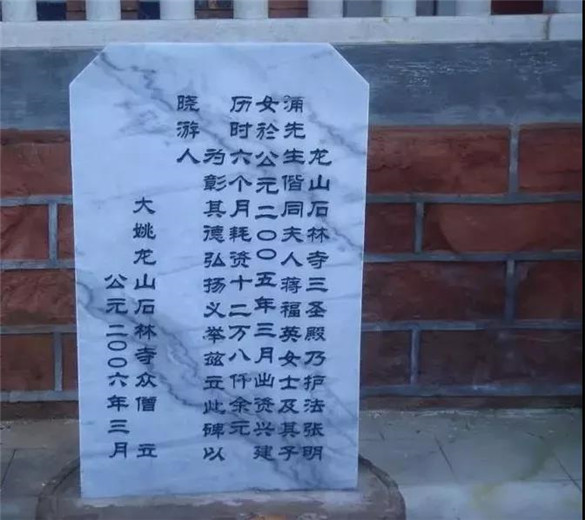 龙山石林寺三圣殿乃护法张明
涌先生偕同夫人蒋福英女士及其子
女於公元二〇〇五年三月出资兴建
历时六个月耗资十二万八仟余元
为彰其德弘扬义举兹立此碑以
晓游人
大姚龙山石林寺众僧 立
公元二〇〇六年三月